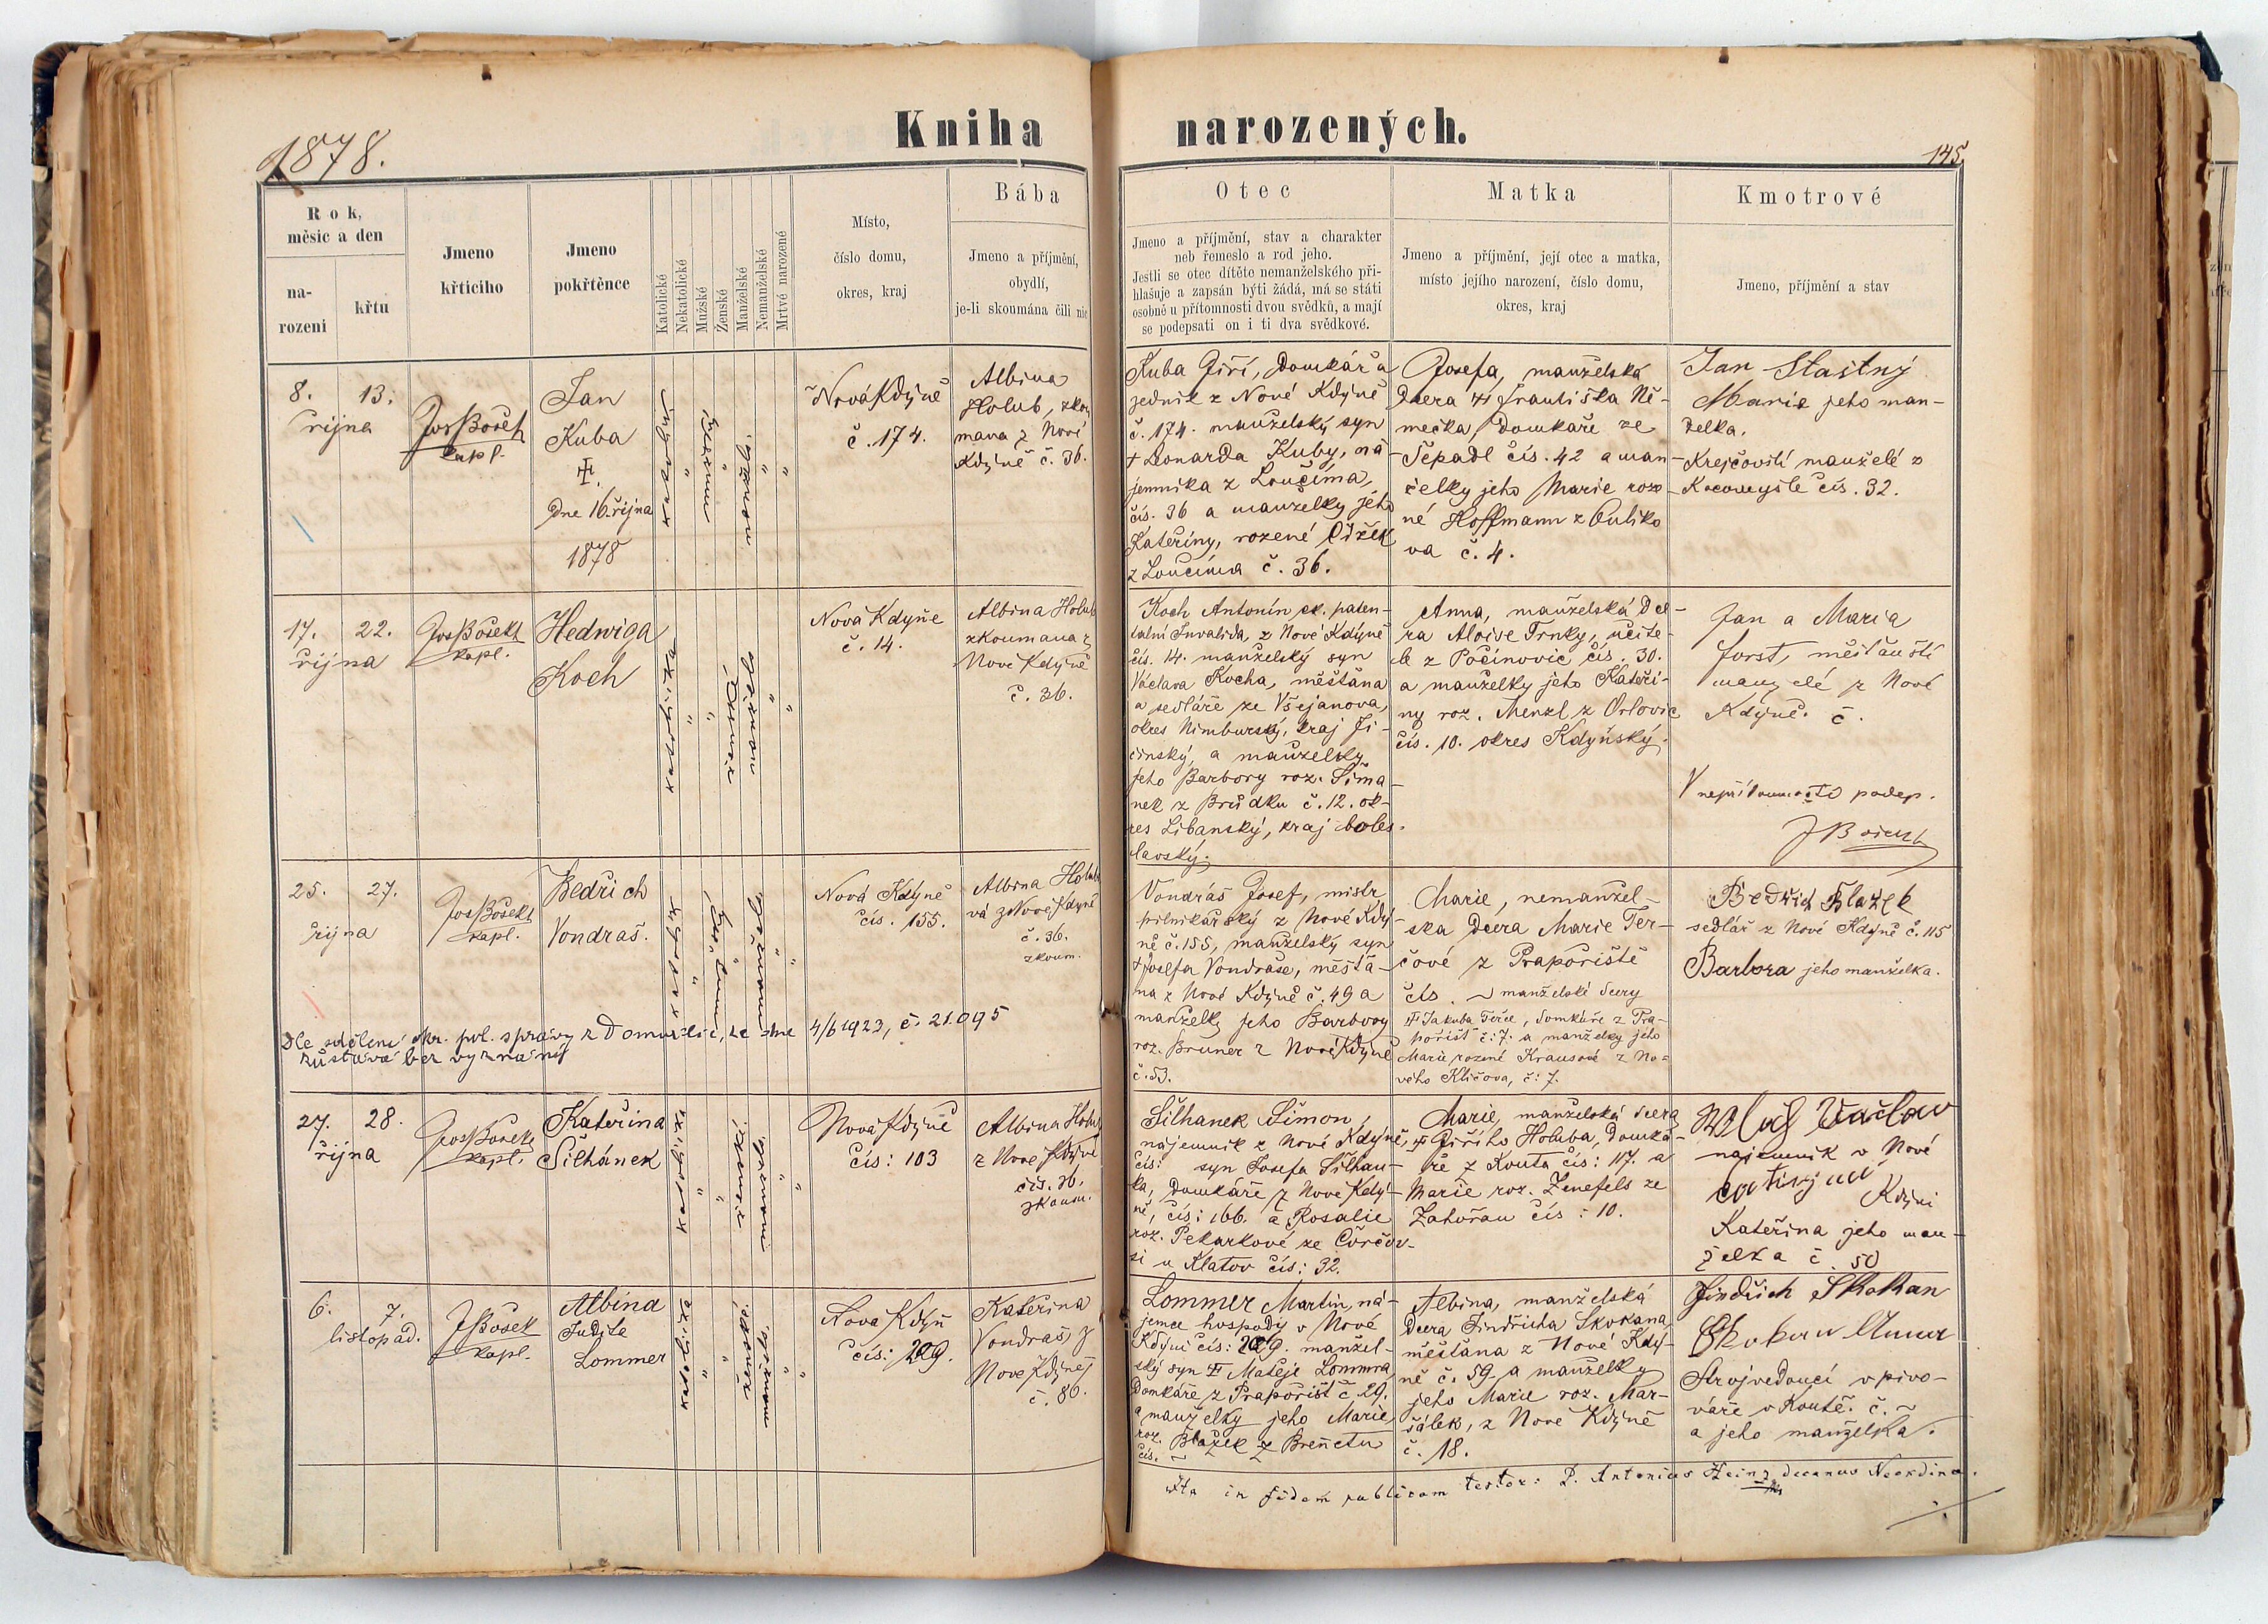 Kniha narozených.
1878.
145.
Rok,
měsíc a den
na-
rozeni
křtu
Jmeno
křticího
Jmeno
pokřtěnce
Katolické
Nekatolické
Mužské
Ženské
Manželské
Nemanželské
Mrtvé narozené
Místo,
číslo domu,
okres, kraj
Bába
Jmeno a příjmění,
obydlí,
je-li skoumána čili nic
Otec
Jmeno a příjmění, stav a charakter
neb řemeslo a rod jeho.
Jestli se otec dítěte nemanželského při-
hlašuje a zapsán býti žádá, má se státi
osobně u přítomnosti dvou svědků, a mají
se podepsati on i ti dva svědkové.
Matka
Jmeno a příjmění, její otec a matka,
místo jejího narození, číslo domu,
okres, kraj
Kmotrové
Jmeno, příjmění a stav
8. 13.
října
Jos Bošek
kapl.
Jan
Kuba
Dne 16. října
1878
Nová Kdýně
č. 174.
Albina
Holub, zkou
mana z Nové
Kdýně č. 36.
Kuba Jiří, domkář a
zedník z Nové Kdýně
č. 174. manželský syn
† Leonarda Kuby, ná
jemníka z Loučíma,
čís. 36 a manželky jeho
Kateřiny, rozené Čížek
z Loučíma č. 36.
Josefa, manželská
dcera Františka Ně-
mečka, domkáře ze
čís. 42 a man
želky jeho Marie roze
né Hoffmann z Buliko
va č. 4.
Jan Šťastný
Marie jeho man-
želka.
Krejčovští manželé z
Kocourys čís. 32.
17. 22.
října
Jos Bošek
kapl.
Hedwiga
Koch
katolického
ženské
manžels
Nová Kdyně
č. 14.
Albina Holub
zkoumana z
Nové Kdýně
č. 36.
Koch Antonín ck. paten-
talní Invalida, z Nové Kdýně
čís. 14. manželský syn
Václava Kocha, měšťana
a sedláře ze Všejanova,
okres Nimburský, kraj Ji-
činský, a manželky
jeho Barbory roz. Šima
nek z Brůdku č. 12. ok-
res Libanský, kraj boles
lavský.
Anna, manželská dce-
ra Aloise Trnky, učite-
le z Počinovic čís. 30.
a manželky jeho Kateři-
ny roz. Menzl z Orlovic
čís. 10. okres Kdyňský.
Jan a Maria
Forst, měšťanští
manželé z Nové
Kdýně. č.
V nepřítomnosti podep.
J Bošek
25. 27.
října
Jos Bošek
kapl.
Bedřich
Vondraš.
Nová Kdýně
čís. 155.
Albina Holub
vá z Nové Kdyně
č. 36.
zkoum.
Dle sdělení okr. pol. správy z Domažlic, ze dne 4/6 1923, č. 21.095
zůstává bez vyznání
Vondraš Josef, mistr
pilnikařský z Nové Kdý-
ně č. 155, manželský syn
† Josefa Vondraše, měšťa-
na z Nové Kdýně č. 49 a
manželky jeho Barbory
roz. Bruner z Nové Kdýně
č. 53.
Marie, nemanžel-
ska dcera Marie Ter-
čové z Prapořiště
čís. manželské dcery
Jakuba Terče, domkáře z Pra-
pořišť č: 7. a manželky jeho
Marie rozené Krausové z No-
vého Kličova, č: 7.
Bedřich Blažek
sedlář z Nové Kdýně č. 115
Barbora jeho manželka.
27. 28.
října
Jos Bošek
kapl.
Kateřina
Šilhánek
Nová Kdýně
čís: 103
Albina Holub
z Nové Kdýně
čís. 36.
zkoum.
Šilhanek Šimon,
nájemník z Nové Kdýně,
čís: syn Josefa Šilhan-
ka, domkáře z Nové Kdý-
ně, čís: 166. a Rosalie
roz. Pekarkové ze
si u Klatov čís: 32.
Marie, manželská dcera
Jiřího Holuba, domká-
ře z Kouta čís: 117. a
Marie roz. Zenefels ze
Zahořan čís: 10.
Václav
najemník v Nové
Kdýni
Kateřina jeho man-
želka č. 50
6. 7.
listopad.
J Bošek
kapl.
Albina
Judita
Lommer
Nová Kdyň
čís: 209.
Kateřina
Vondraš z
Nové Kdýně
č. 86.
Lommer Martin, ná-
jemce hospody v Nové
Kdýni čís: 209. manžel-
ský syn Matěje Lommra,
domkáře z Prapořišť č. 29.
a manželky jeho Marie,
roz. Blažek z Brenetu
čís.
Albina, manželská
dcera Jindřicha Skokana
měšťana z Nové Kdý-
ně č. 59 a manželky
jeho Marie roz. Mar-
šálek, z Nové Kdýně
č. 18.
Jindřich Skokan
Skokan Anna
Strojvedoucí v pivo-
váře v Koutě. č.
a jeho manželka.
Ita in fidem publicam testor: P. Antonius Heinz decanus Neokdin.